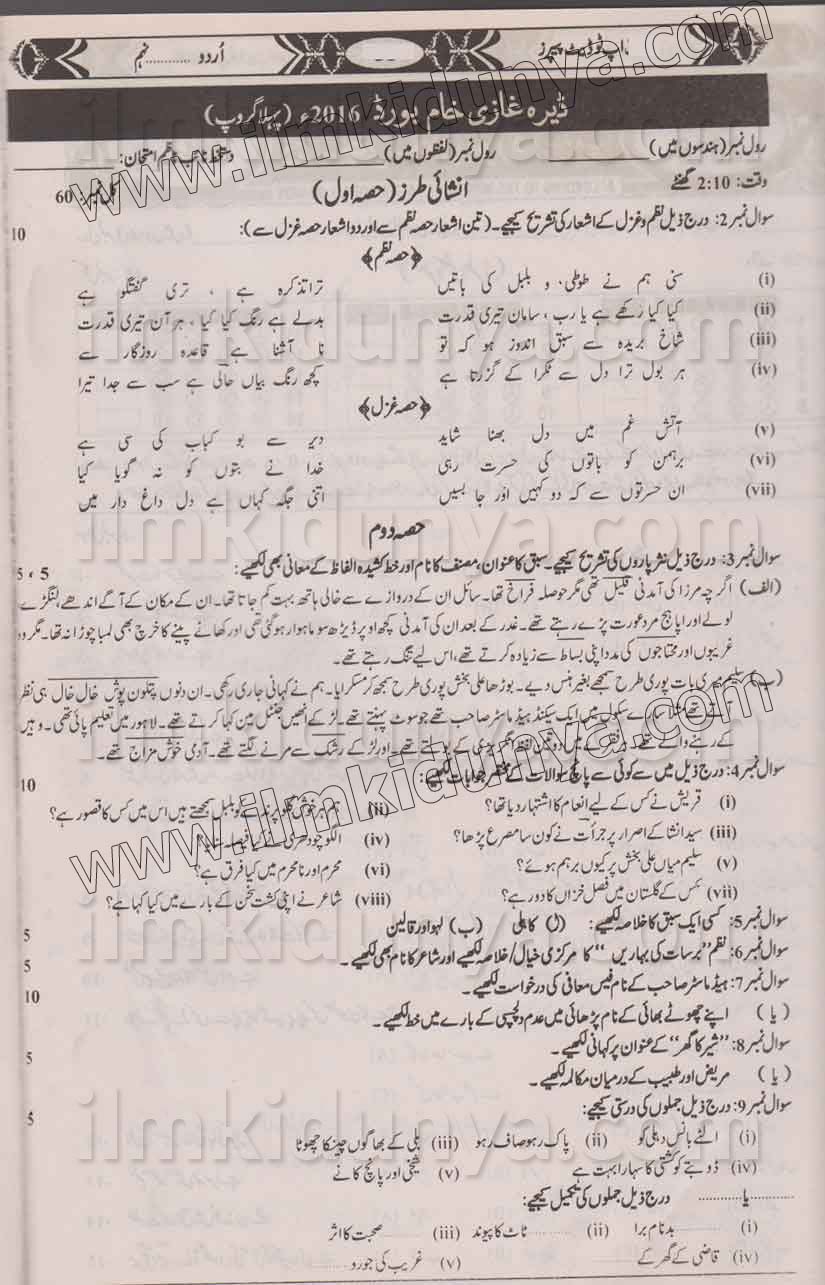 اپ ٹو ڈیٹ پیپرز
اُردو ............ نہم
ڈیرہ غازی خاں بورڈ 2016ء (پہلا گروپ)
رول نمبر (ہندسوں میں) رول نمبر (لفظوں میں) امتحان:
وقت: 2:10 گھنٹے انشائی طرز (حصہ اول) کل نمبر: 60
سوال نمبر 2: درج ذیل نظم و غزل کے اشعار کی تشریح کیجیے۔ (تین اشعار حصہ نظم سے اور دو اشعار حصہ غزل سے): 10
﴿حصہ نظم﴾
(i) سنی ہم نے طوطی، و بلبل کی باتیں ترا تذکرہ ہے ، تری گفتگو ہے
(ii) کیا کیا رکھے ہے یا رب، سامان تیری قدرت بدلے ہے رنگ کیا کیا، ہر آن تیری قدرت
(iii) شاخ بریدہ سے سبق اندوز ہو کہ تو نا آشنا ہے قاعدہ روزگار سے
(iv) ہر بول ترا دل سے ٹکرا کے گزرتا ہے کچھ رنگ بیاں حالی ہے سب سے جدا تیرا
﴿حصہ غزل﴾
(v) آتش غم میں دل بھنا شاید دیر سے بو کباب کی سی ہے
(vi) برہمن کو باتوں کی حسرت رہی خدا نے بتوں کو نہ گویا کیا
(vii) ان حسرتوں سے کہ دو کہیں اور جا بسیں اتنی جگہ کہاں ہے دل داغ دار میں
حصہ دوم
سوال نمبر 3: درج ذیل نثر پاروں کی تشریح کیجیے۔ سبق کا عنوان، مصنف کا نام اور خط کشیدہ الفاظ کے معانی بھی لکھیے: 5 ، 5
(الف) اگرچہ مرزا کی آمدنی قلیل تھی مگر حوصلہ فراخ تھا۔ سائل ان کے دروازے سے خالی ہاتھ بہت کم جاتا تھا۔ ان کے مکان کے آگے اندھے، لنگڑے،
لولے اور اپاہج مرد عورت پڑے رہتے تھے۔ غدر کے بعد ان کی آمدنی کچھ اوپر ڈیڑھ سو ماہوار ہو گئی تھی اور کھانے پینے کا خرچ بھی لمبا چوڑا نہ تھا۔ مگر وہ
غریبوں اور محتاجوں کی مدد اپنی بساط سے زیادہ کرتے تھے، اس لیے تنگ رہتے تھے۔
(ب) سلیم میری بات پوری طرح سمجھے بغیر ہنس دیے۔ بوڑھا علی بخش پوری طرح سمجھ کر مسکرایا۔ ہم نے کہانی جاری رکھی۔ ان دنوں پتلون پوش خال خال ہی نظر
آتے تھے مثلاً سارے سکول میں ایک سیکنڈ ہیڈ ماسٹر صاحب تھے جو سوٹ پہنتے تھے۔ لڑکے انھیں جنٹل مین کہا کرتے تھے۔ لاہور میں تعلیم پائی تھی۔ وہیں
کے رہنے والے تھے۔ ہر فقرے میں دو تین لفظ انگریزی کے بولتے تھے۔ اور لڑکے رشک سے مرنے لگتے تھے۔ آدمی خوش مزاج تھے۔
سوال نمبر 4: درج ذیل میں سے کوئی سے پانچ سوالات کے مختصر جوابات لکھیے: 10
(i) قریش نے کس کے لیے انعام کا اشتہار دیا تھا؟ (ii) ہم ہر خوش گلو پرندے کو بلبل سمجھتے ہیں اس میں کس کا قصور ہے؟
(iii) سید انشا کے اصرار پر جرأت نے کون سا مصرع پڑھا؟ (iv) الگو چودھری نے کیا فیصلہ سنایا؟
(v) سلیم میاں علی بخش پر کیوں برہم ہوئے؟ (vi) محرم اور نامحرم میں کیا فرق ہے؟
(vii) کس کے گلستان میں فصل خزاں کا دور ہے؟ (viii) شاعر نے اپنی کشت سخن کے بارے میں کیا کہا ہے؟
سوال نمبر 5: کسی ایک سبق کا خلاصہ لکھیے: (ل) کاہلی (ب) لہو اور قالین 5
سوال نمبر 6: نظم "برسات کی بہاریں" کا مرکزی خیال/خلاصہ لکھیے اور شاعر کا نام بھی لکھیے۔ 5
سوال نمبر 7: ہیڈ ماسٹر صاحب کے نام فیس معافی کی درخواست لکھیے۔ 10
(یا) اپنے چھوٹے بھائی کے نام پڑھائی میں عدم دلچسپی کے بارے میں خط لکھیے۔
سوال نمبر 8: "شیر کا گھر" کے عنوان پر کہانی لکھیے۔ 5
(یا) مریض اور طبیب کے درمیان مکالمہ لکھیے۔
سوال نمبر 9: درج ذیل جملوں کی درستی کیجیے: 5
(i) الٹے بانس دہلی کو (ii) پاک رہو صاف رہو (iii) بلی کے بھاگوں چھینکا چھوٹا
(iv) ڈوبتے کو کشتی کا سہارا بہت ہے (v) شیخی اور پانچ کانے
............یا............ درج ذیل جملوں کی تکمیل کیجیے:
(i) ............ بدنام برا (ii) ............ ٹاٹ کا پیوند (iii) ............ صحبت کا اثر
(iv) قاضی کے گھر کے ............ (v) غریب کی جورو ............
www.ilmkidunya.com
www.ilmkidunya.com
ilmkidunya.com
ilmkidunya.com
ilmkidunya.com
ilmkidunya.com
ilmkidunya.com